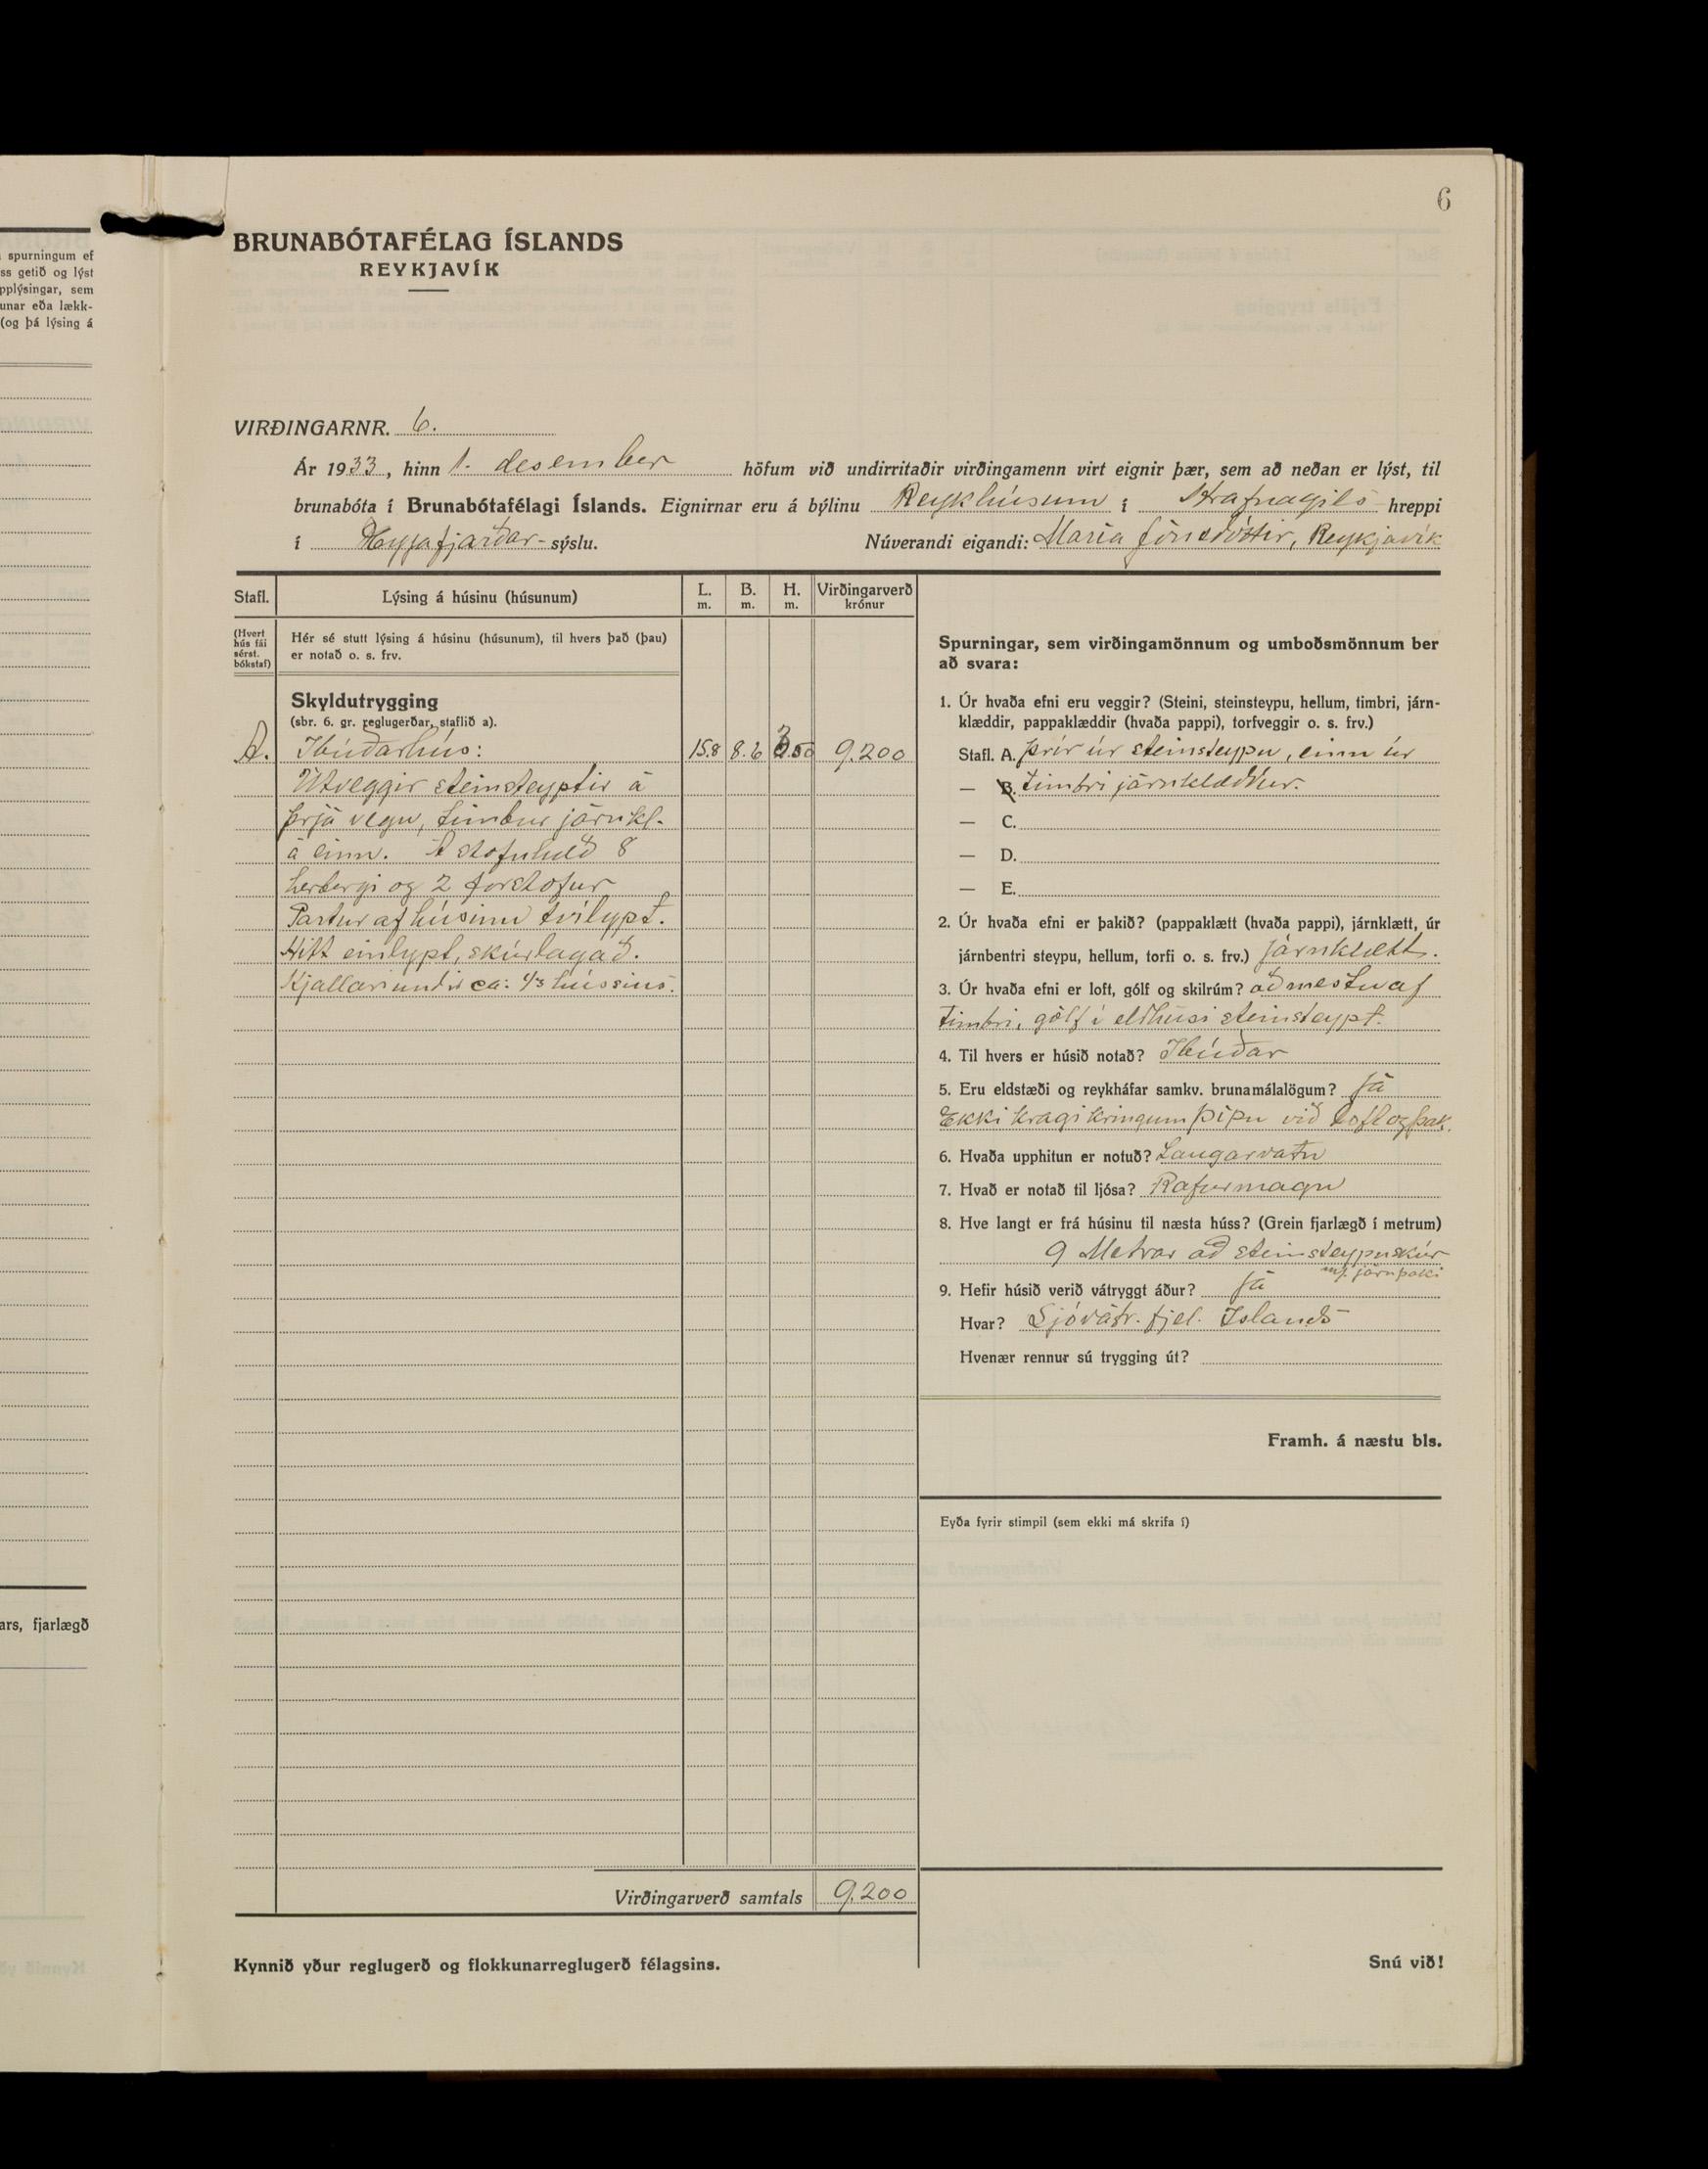 6
spurningum ef
ss getið og lýst
pplýsingar, sem
unar eða lækk-
(og þá lýsing á
ars, fjarlægð
BRUNABÓTAFÉLAG ÍSLANDS
REYKJAVÍK
VIRÐINGARNR. 6.
Ár 1933, hinn 1. desember höfum við undirritaðir virðingamenn virt eignir þær, sem að neðan er lýst, til
brunabóta í Brunabótafélagi Íslands. Eignirnar eru á býlinu Reykhúsum í Hrafnagils hreppi
í Eyjafjarðar-sýslu. Núverandi eigandi: María Jónsdóttir, Reykjavík
Stafl. Lýsing á húsinu (húsunum) L. m. B. m. H. m. Virðingarverð krónur
(Hvert hús fái sérst. bókstaf)
Hér sé stutt lýsing á húsinu (húsunum), til hvers það (þau)
er notað o. s. frv.
Skyldutrygging
(sbr. 6. gr. reglugerðar, staflið a).
A. Íbúðarhús: 15.8 8.6 3.50 9.200
Útveggir steinsteyptir á
þrjá vegu, timbur járnkl.
á einn. Á stofuhæð 8
herbergi og 2 forstofur
Partur af húsinu tvílypt.
Hitt einlypt, skúrlagað.
Kjallari undir ca: 1/3 hússins.
Virðingarverð samtals 9.200
Kynnið yður reglugerð og flokkunarreglugerð félagsins.
Spurningar, sem virðingamönnum og umboðsmönnum ber
að svara:
1. Úr hvaða efni eru veggir? (Steini, steinsteypu, hellum, timbri, járn-
klæddir, pappaklæddir (hvaða pappi), torfveggir o. s. frv.)
Stafl. A. Þrír úr steinsteypu, einn úr
— B. timbri járnklæddur.
— C.
— D.
— E.
2. Úr hvaða efni er þakið? (pappaklætt (hvaða pappi), járnklætt, úr
járnbentri steypu, hellum, torfi o. s. frv.) járnklætt.
3. Úr hvaða efni er loft, gólf og skilrúm? að mestu af
timbri, gólf í eldhúsi steinsteypt.
4. Til hvers er húsið notað? Íbúðar
5. Eru eldstæði og reykháfar samkv. brunamálalögum? Já
Ekki kragi kringum pípu við loft og þak.
6. Hvaða upphitun er notuð? Laugarvatn
7. Hvað er notað til ljósa? Rafurmagn
8. Hve langt er frá húsinu til næsta húss? (Grein fjarlægð í metrum)
9 Metrar að steinsteypuskúr
m/ járnþaki
9. Hefir húsið verið vátryggt áður? Já
Hvar? Sjóvátr. fjel. Íslands
Hvenær rennur sú trygging út?
Framh. á næstu bls.
Eyða fyrir stimpil (sem ekki má skrifa í)
Snú við!